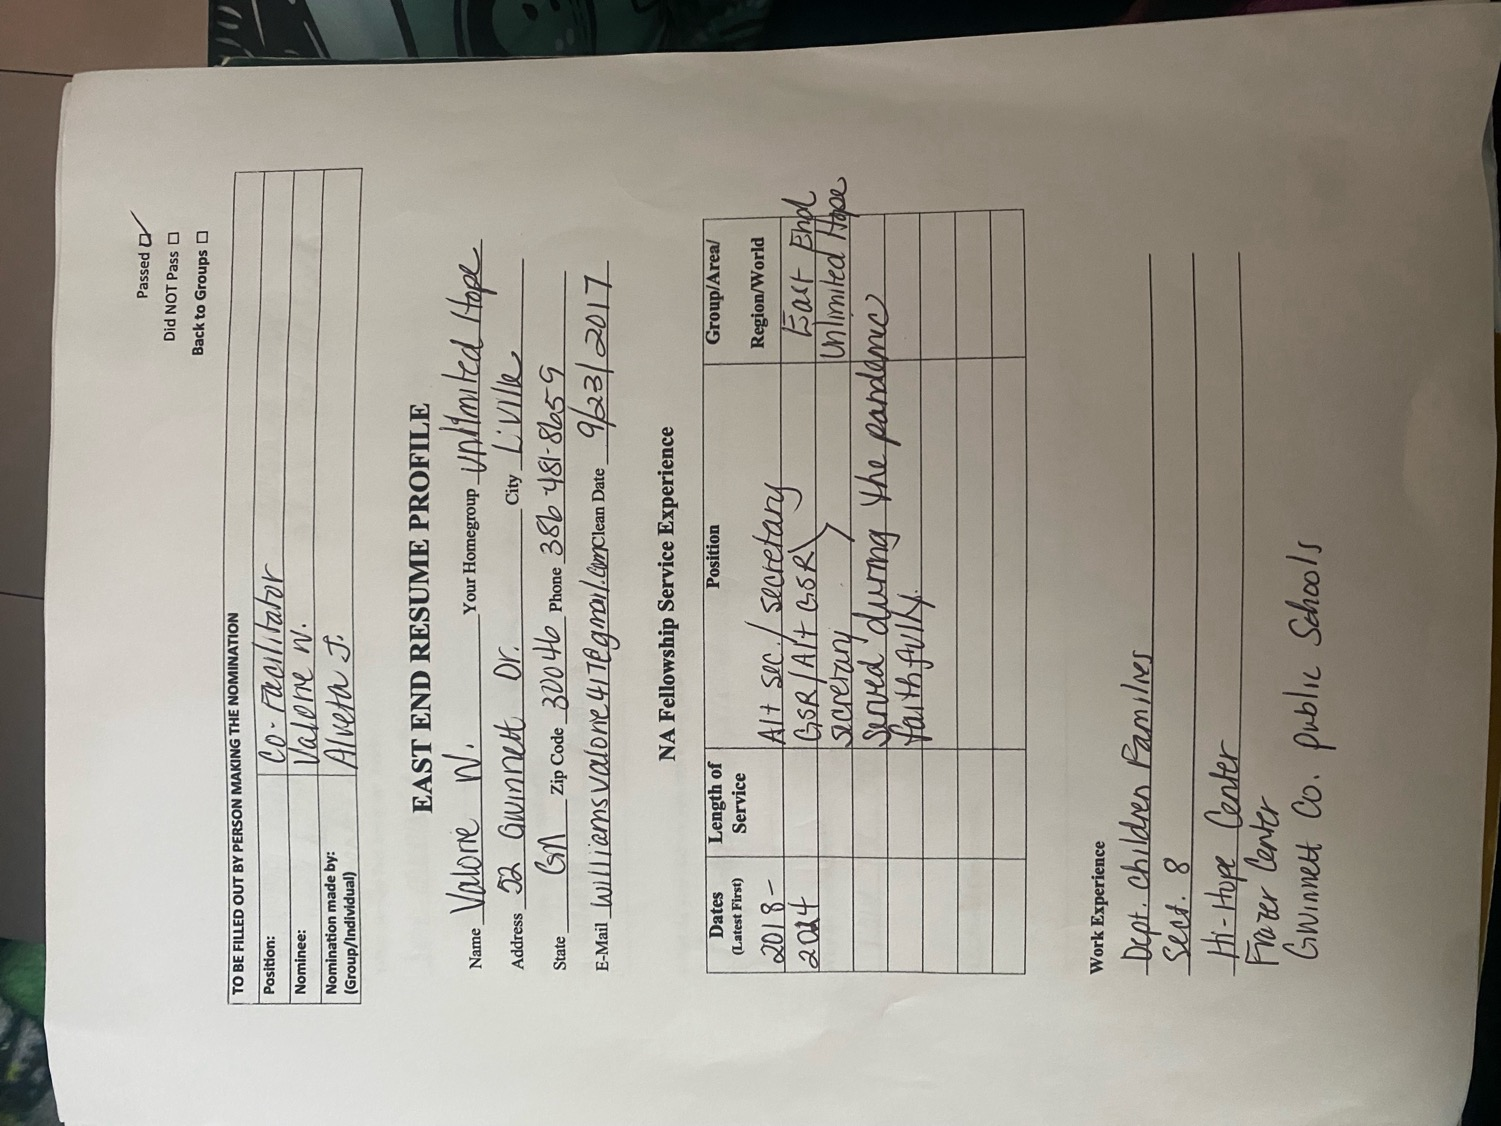 Passed ☑
Did NOT Pass ☐
Back to Groups ☐
TO BE FILLED OUT BY PERSON MAKING THE NOMINATION
Position: Co-Facilitator
Nominee: Valorie W.
Nomination made by: Alveta J.
(Group/Individual)
EAST END RESUME PROFILE
Name Valorie W. Your Homegroup Unlimited Hope
Address 52 Gwinnett Dr. City L'ville
State GA Zip Code 30046 Phone 386-481-8659
E-Mail williamsvalorie417@gmail.com Clean Date 9/23/2017
NA Fellowship Service Experience
Dates Length of Position Group/Area/
(Latest First) Service Region/World
2018- Alt sec./secretary East End
2024 GSR/Alt GSR Unlimited Hope
secretary
Served during the pandemic
faithfully.
Work Experience
Dept. Children Families
Sect. 8
Hi-Hope Center
Frazer Center
Gwinnett Co. public Schools